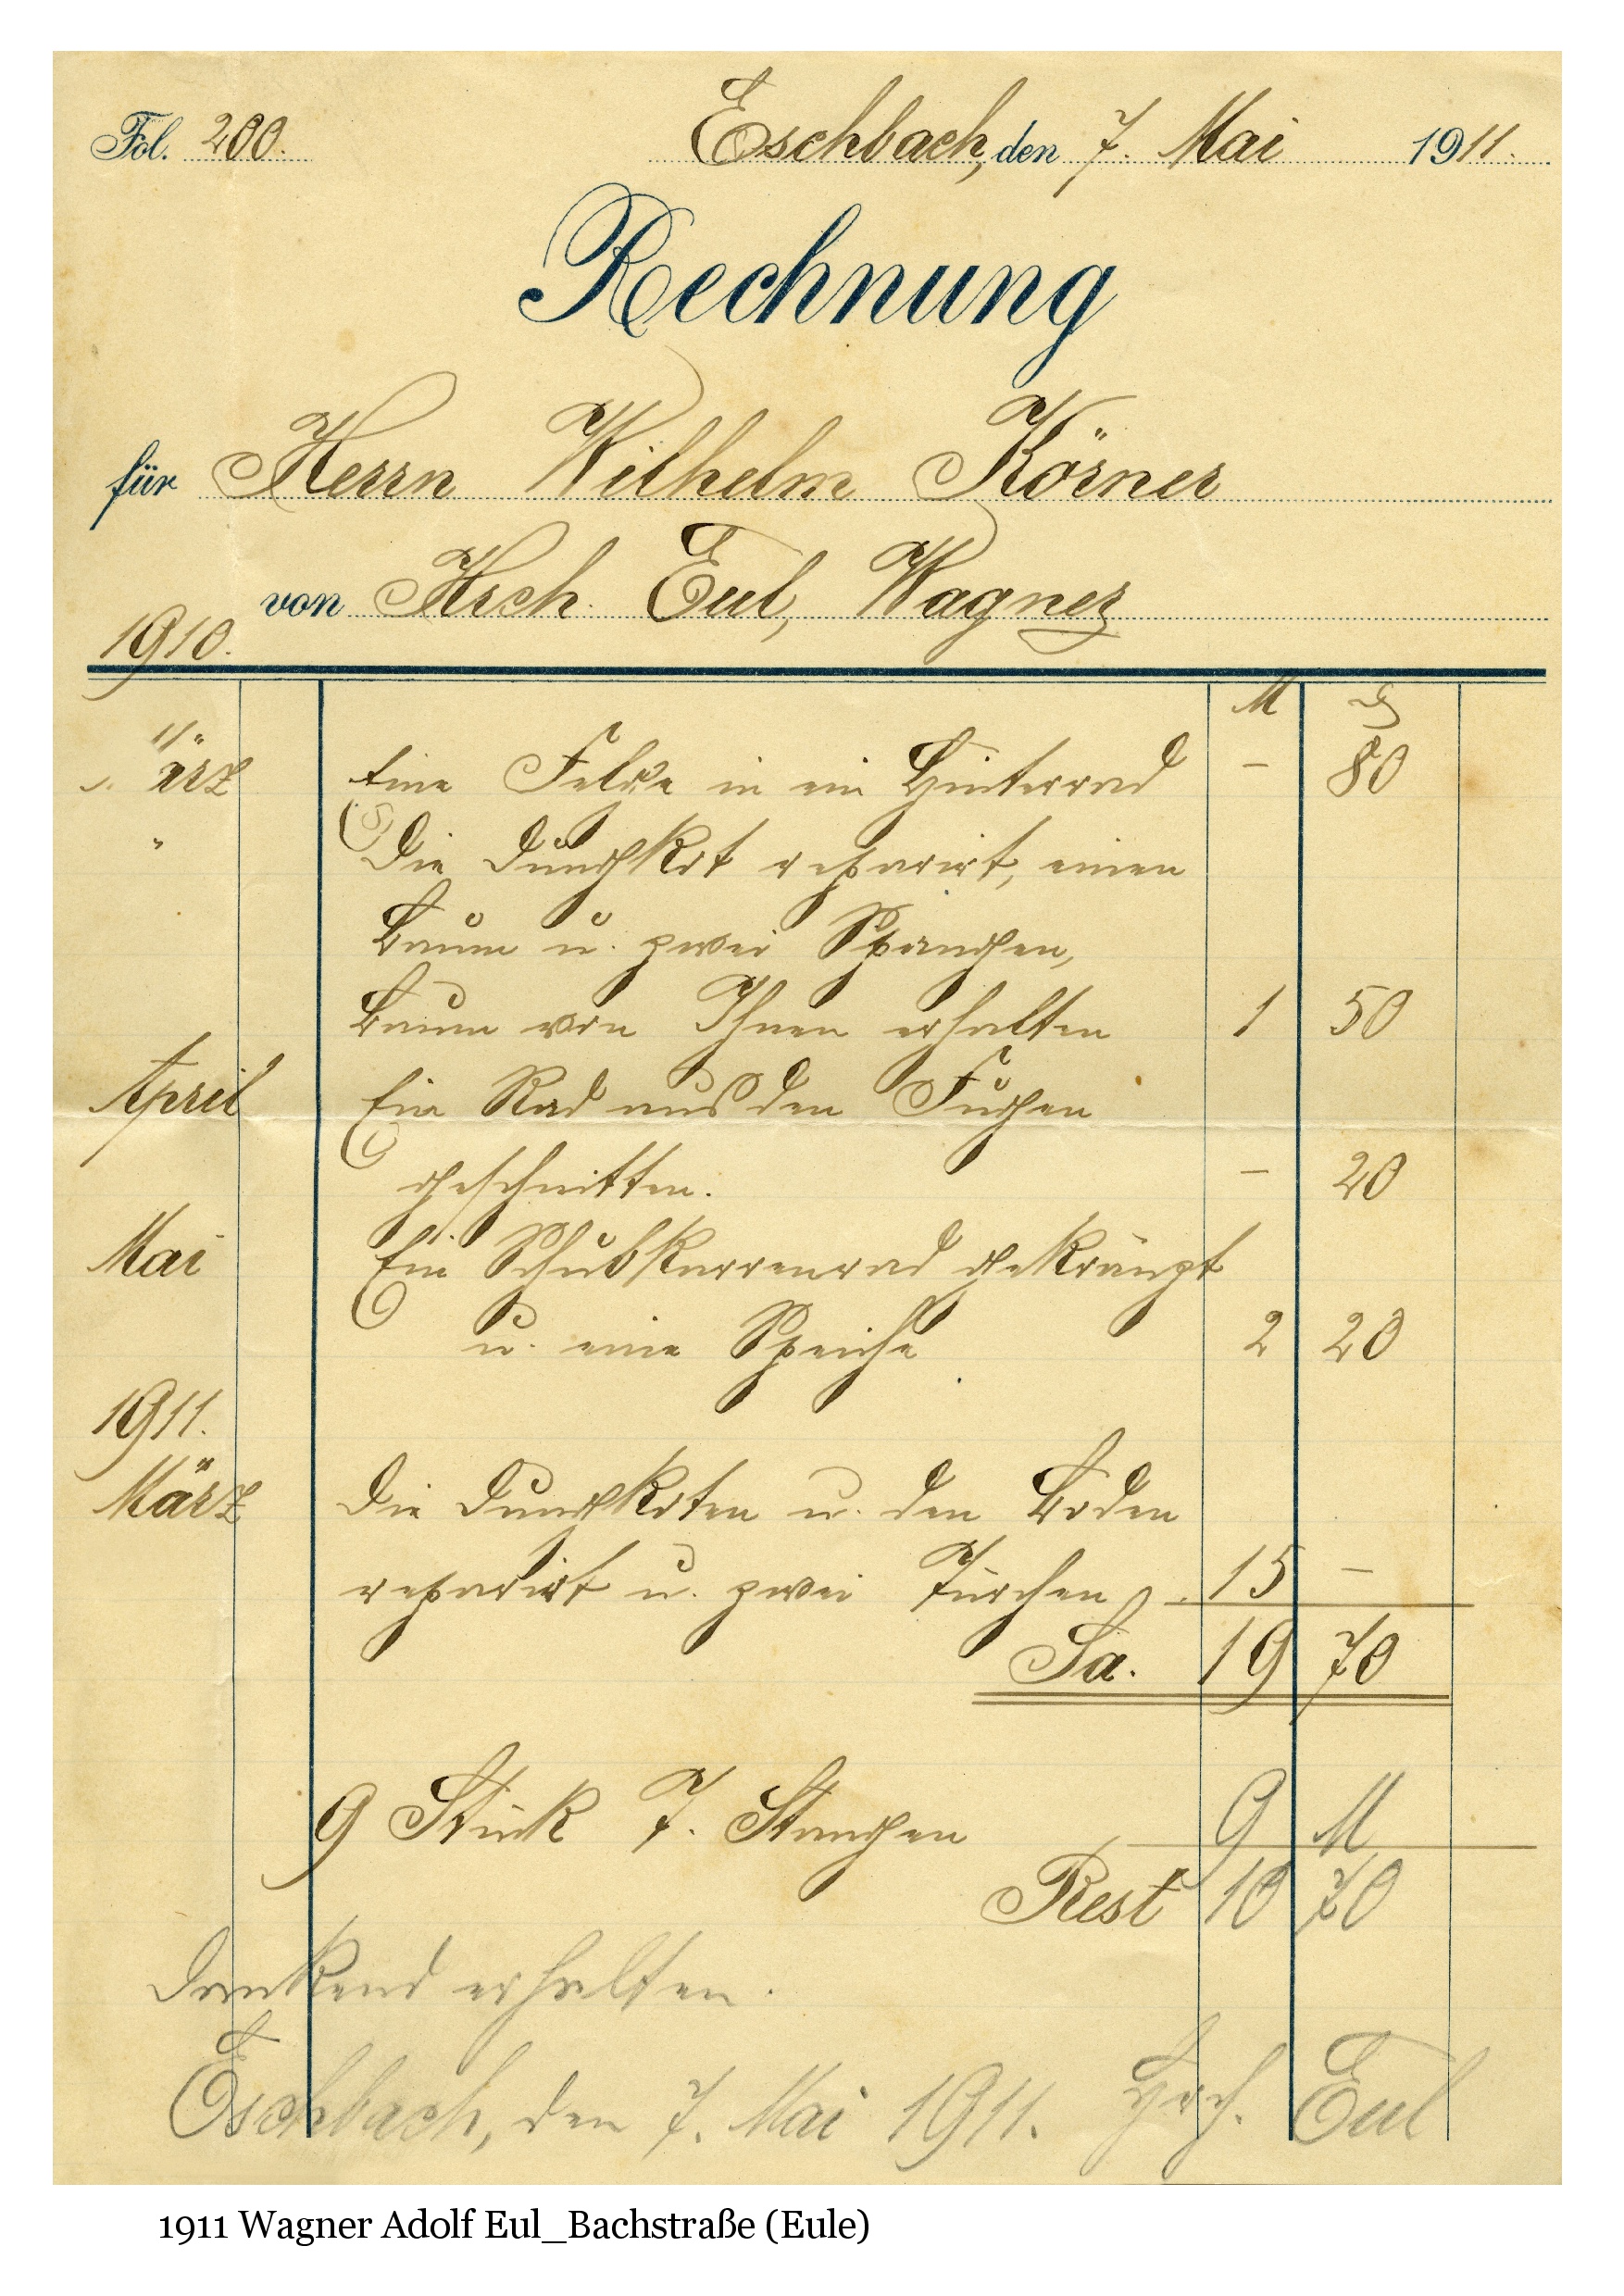 Fol. 200. Eschbach, den 7. Mai 1911.
Rechnung
für Herrn Wilhelm Körner
von Hrch. Eul, Wagner
1910.
M ₰
März Eine Felge in ein Hinterrad – 80
" Die Dungkot reparirt, einen
Baum u. zwei Spangen,
Baum von Ihnen erhalten 1 50
April Ein Rad aus den Fugen
geschnitten. – 20
Mai Ein Schubkarrenrad gekränzt
u. eine Speiche 2 20
1911.
März Die Dungkoten u. den Boden
reparirt u. zwei Türchen 15 –
Sa. 19 70
9 Stück T. Stangen 9 M
Rest 10 70
Dankend erhalten.
Eschbach, den 7. Mai 1911. Hrch. Eul
1911 Wagner Adolf Eul_Bachstraße (Eule)